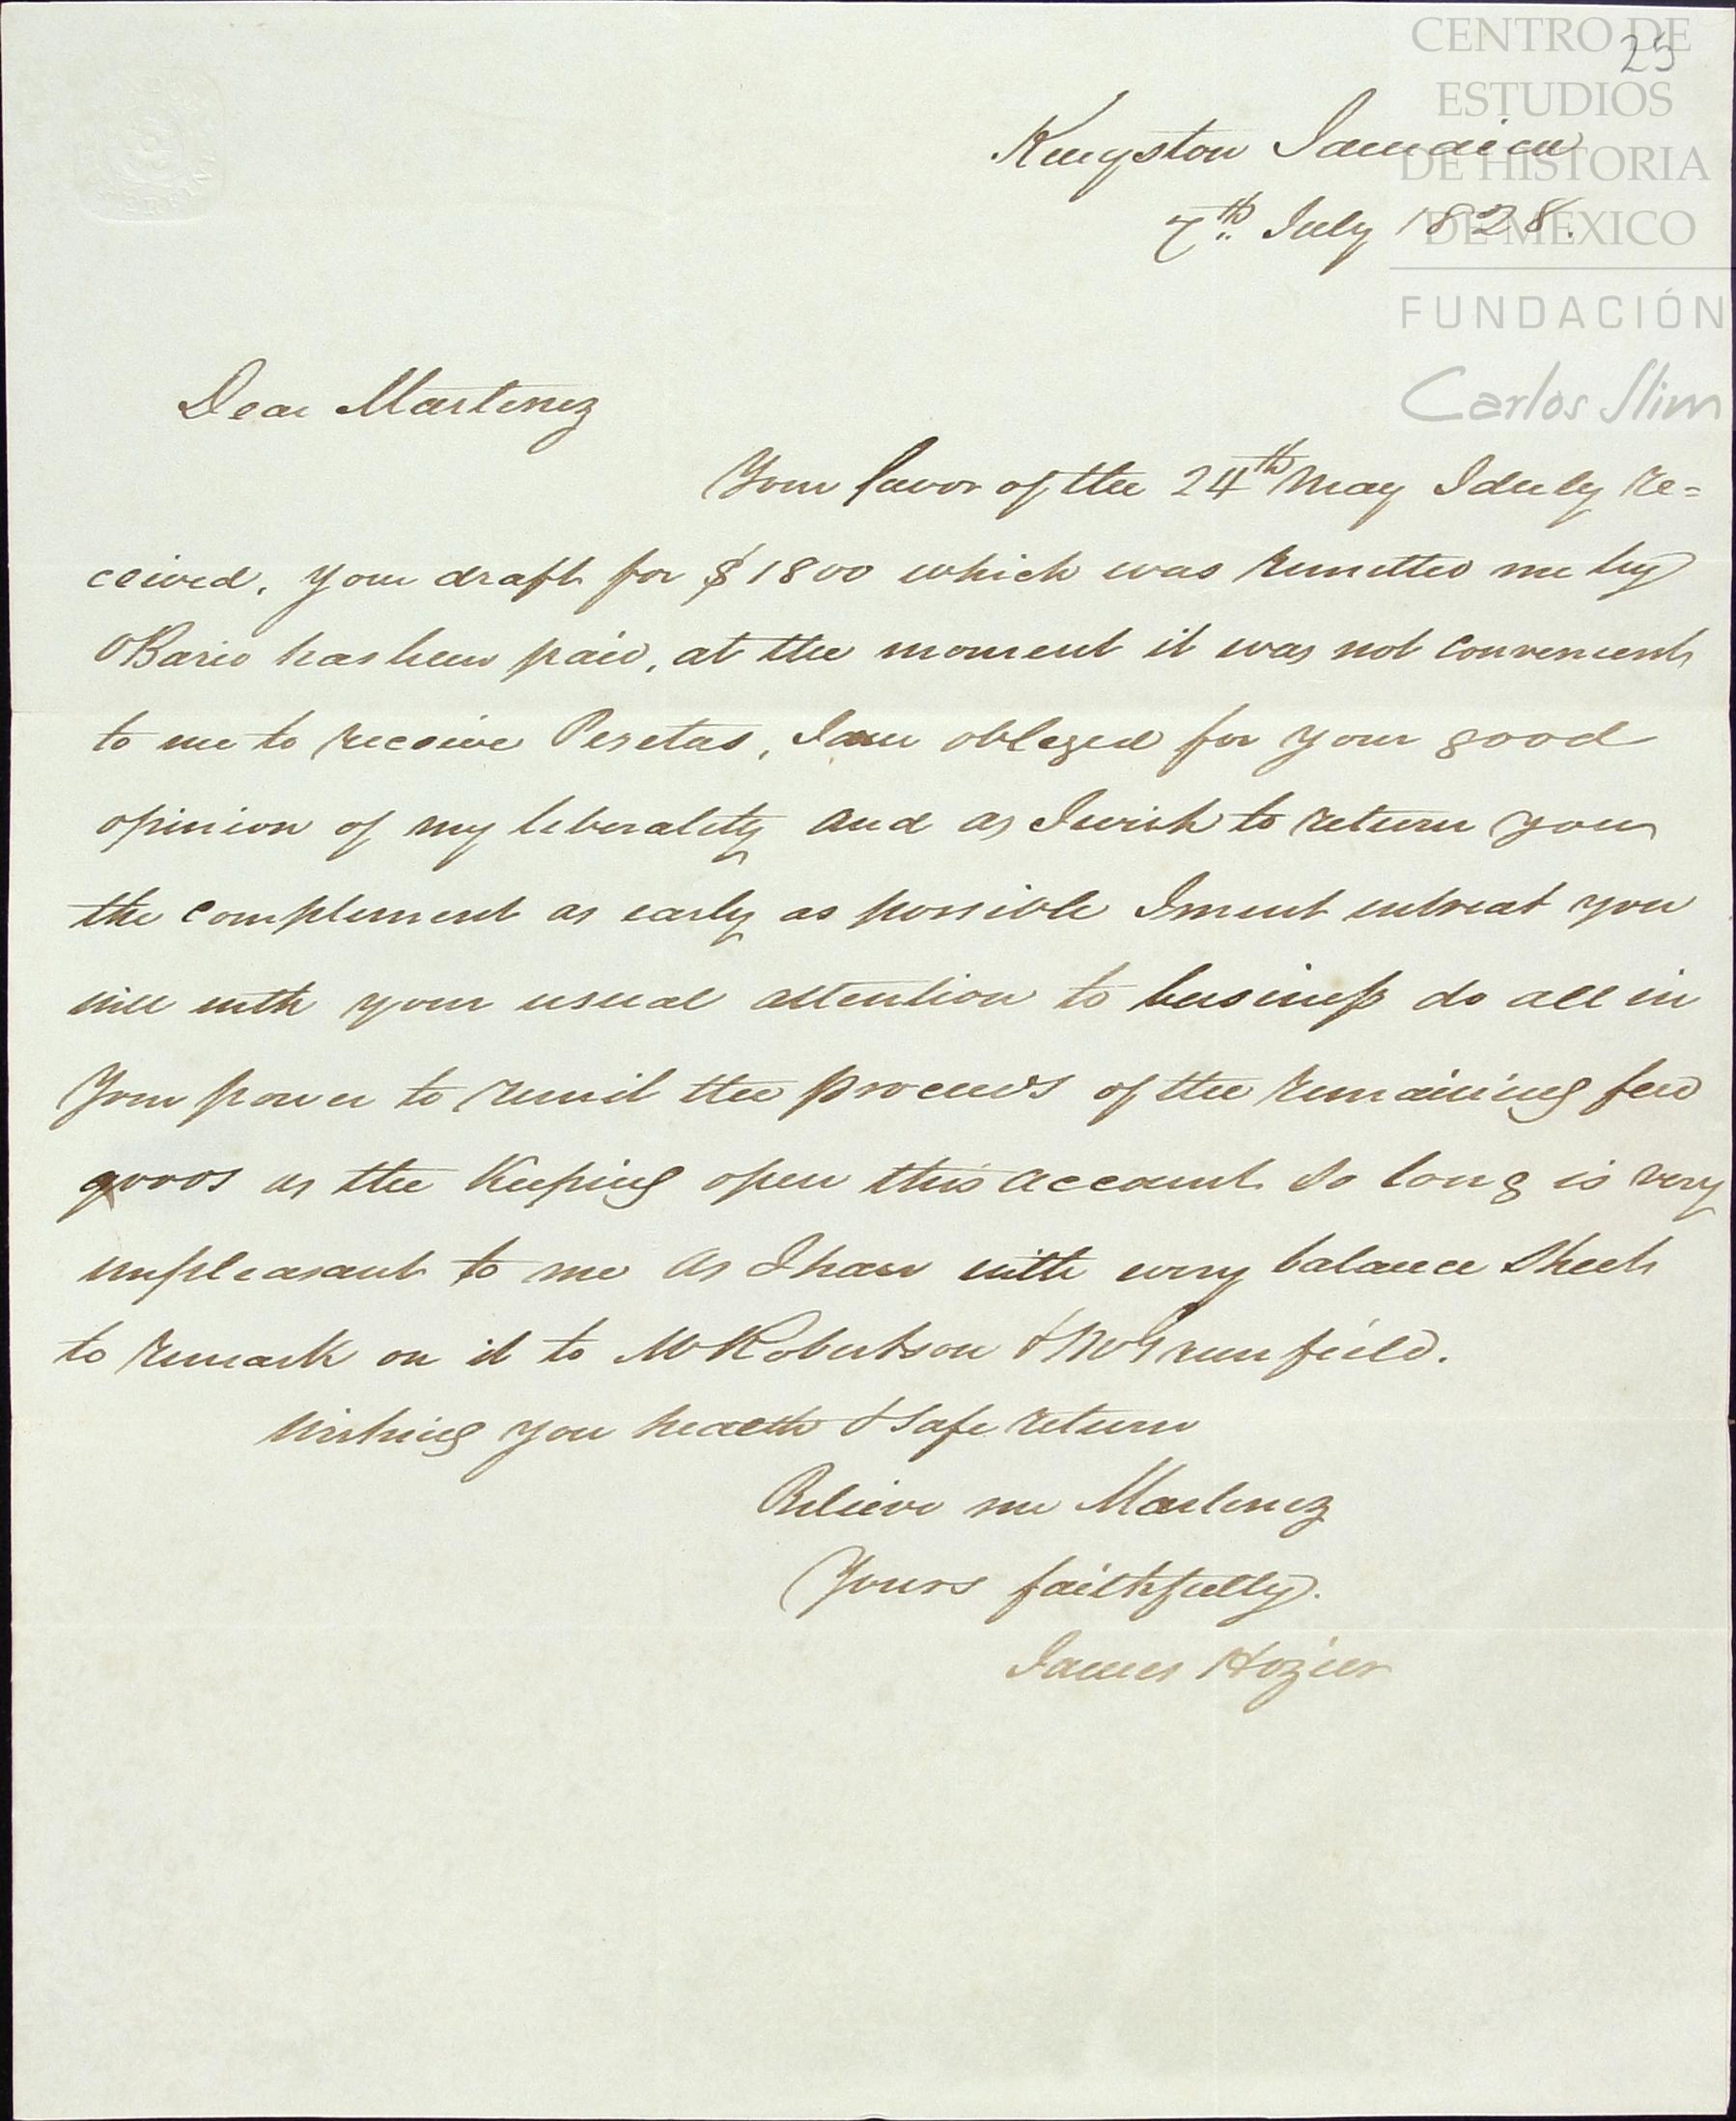 CENTRO DE
ESTUDIOS
DE HISTORIA
DE MÉXICO
FUNDACIÓN
Carlos Slim
25
Kingston Jamaica
7th July 1828.
Dear Martinez
Your favor of the 24th May I duly re=
ceived, your draft for $1800 which was remitted me by
has been paid, at the moment it was not convenient
to me to receive Pesetas, I am obliged for your good
opinion of my liberality and as I wish to return you
the compliment as early as possible I must entreat you
will with your usual attention to business do all in
your power to remit the proceeds of the remaining few
goods as the keeping open this account so long is very
unpleasant to me as I have with every balance sheet
to remark on it to Mr Robertson & Mr Greenfield.
Wishing you health & safe return
Believe me Martinez
Yours faithfully.
James Hozier